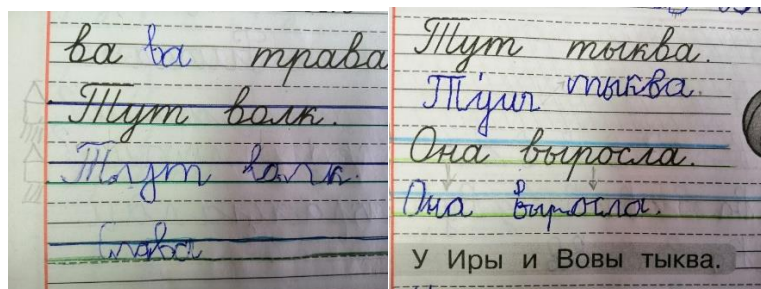 ва ва трава
Тут волк.
Тут волк.
Слава
Тут тыква.
Тут тыква.
Она выросла.
Она выросла.
У Иры и Вовы тыква.